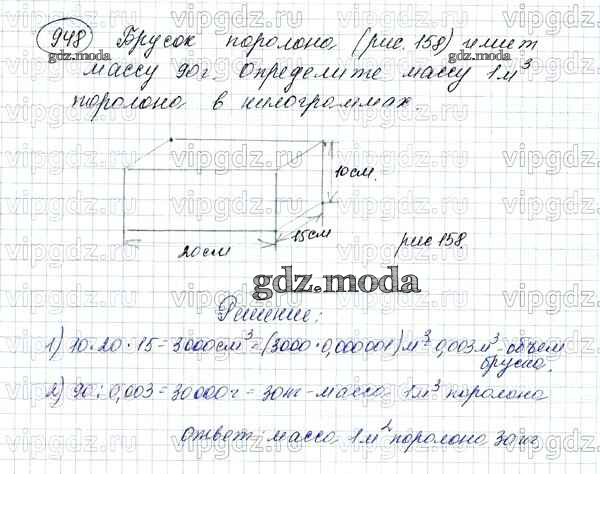 948 Брусок поролона (рис. 158) имеет
массу 90г. определите массу 1м³
поролона в килограммах.
10см.
15см
20см
рис 158.
gdz.moda
Решение:
1) 10·20·15=3000см³=(3000·0,000001)м³=0,003м³-объем
бруска.
2) 90:0,003=30000г=30кг-масса 1м³ поролона
ответ: масса 1м² поролона 30кг